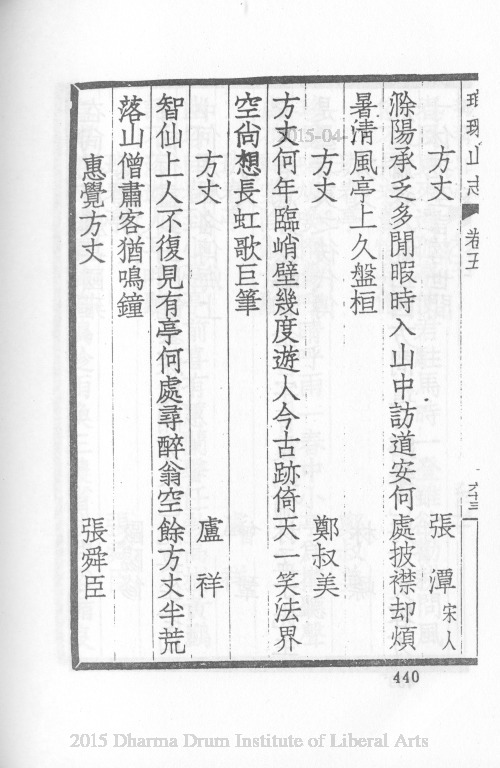 琅琊山志 卷五 六十三
方丈 張潭 宋人
滁陽承乏多閒暇時入山中訪道安何處披襟却煩
暑清風亭上久盤桓
方丈 鄭叔美
方丈何年臨峭壁幾度遊人今古跡倚天一笑法界
空尙想長虹歌巨筆
方丈 盧祥
智仙上人不復見有亭何處尋醉翁空餘方丈半荒
落山僧肅客猶鳴鐘
惠覺方丈 張舜臣
440
2015-04-
2015 Dharma Drum Institute of Liberal Arts